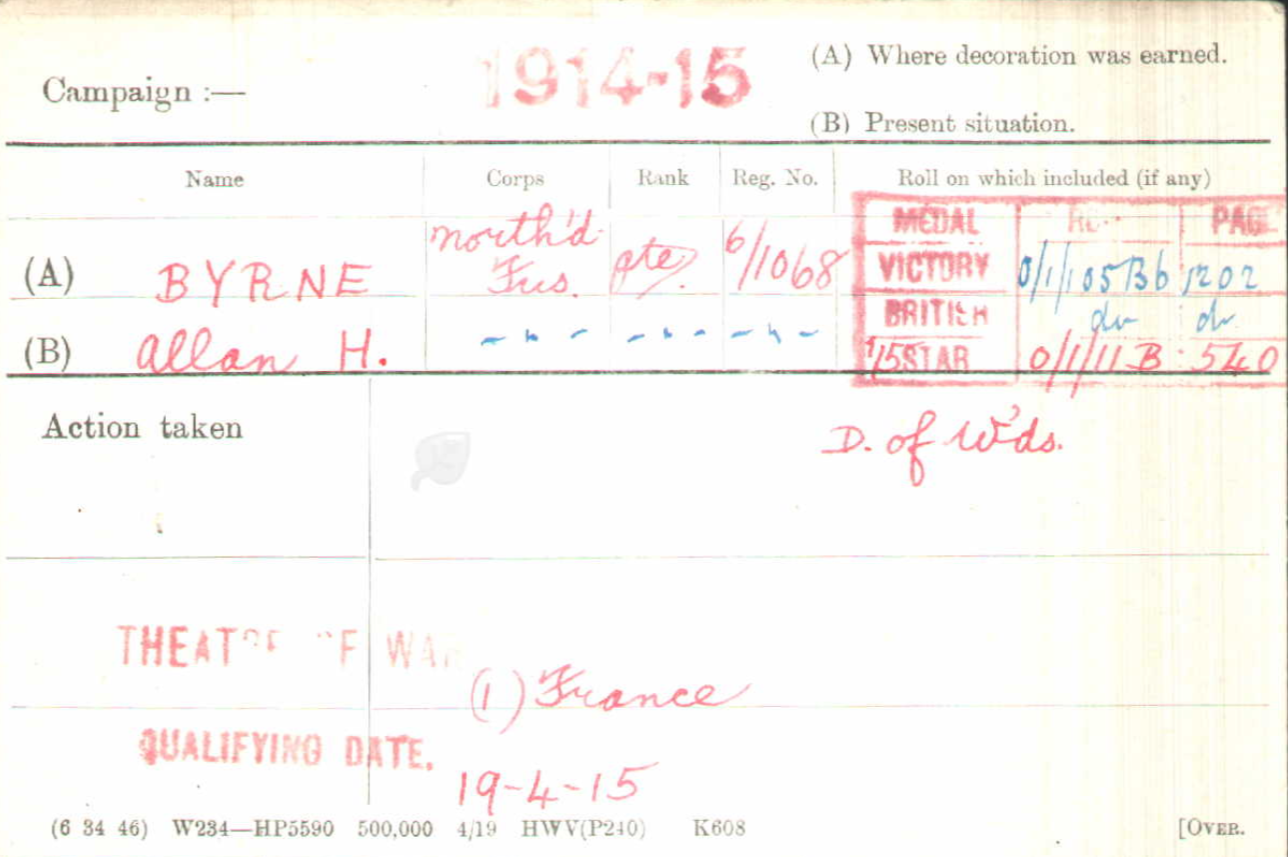 Campaign :— 1914-15 (A) Where decoration was earned.
(B) Present situation.
Name Corps Rank Reg. No. Roll on which included (if any)
MEDAL PAGE
(A) BYRNE North'd Fus. Pte. 6/1068 VICTORY 0/1/105B6 1202
BRITISH do do
(B) Allan H. -"- -"- -"- 1/15 STAR 0/1/11B 540
Action taken D. of W'ds.
THEATRE OF WAR
(1) France
QUALIFYING DATE.
19-4-15
(6 34 46) W234—HP5590 500,000 4/19 HWV(P240) K608 [OVER.